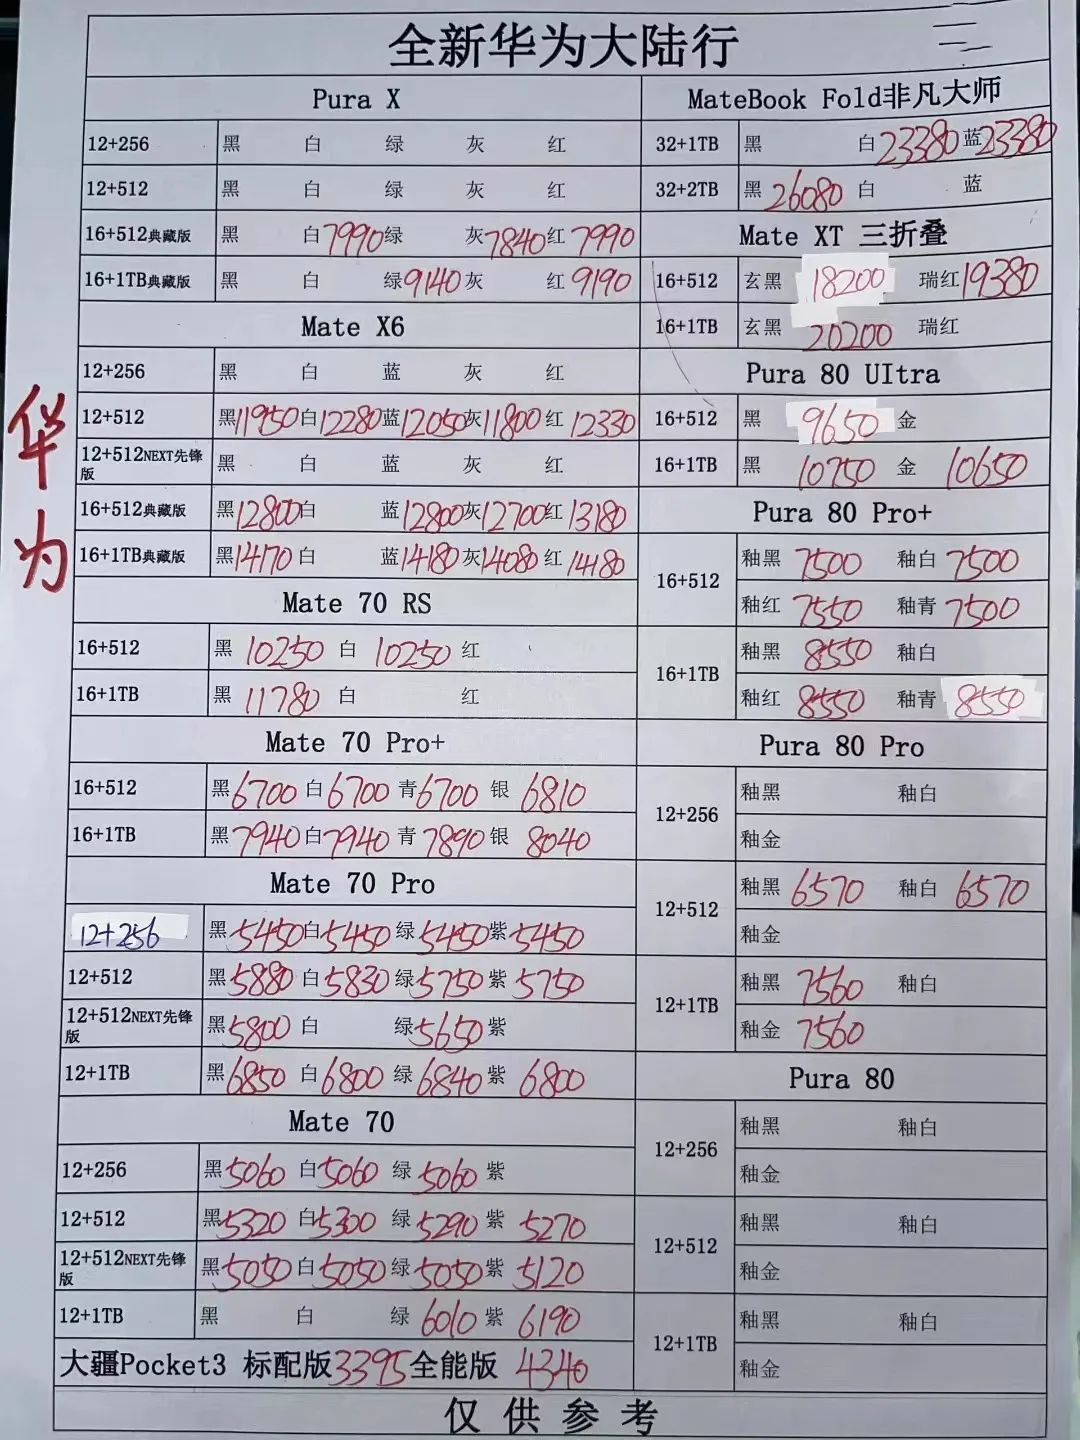 全新华为大陆行
华为
Pura X
12+256 黑 白 绿 灰 红
12+512 黑 白 绿 灰 红
16+512典藏版 黑 白7990 绿 灰7840 红7990
16+1TB典藏版 黑 白 绿9140 灰 红9190
Mate X6
12+256 黑 白 蓝 灰 红
12+512 黑11950 白12280 蓝12050 灰11800 红12330
12+512NEXT先锋版 黑 白 蓝 灰 红
16+512典藏版 黑12800 白 蓝12800 灰12700 红13180
16+1TB典藏版 黑14170 白 蓝14180 灰14080 红14480
Mate 70 RS
16+512 黑10250 白10250 红
16+1TB 黑11780 白 红
Mate 70 Pro+
16+512 黑6700 白6700 青6700 银6810
16+1TB 黑7940 白7940 青7890 银8040
Mate 70 Pro
12+256 黑5450 白5450 绿5450 紫5450
12+512 黑5880 白5830 绿5750 紫5750
12+512NEXT先锋版 黑5800 白 绿5650 紫
12+1TB 黑6850 白6800 绿6840 紫6800
Mate 70
12+256 黑5060 白5060 绿5060 紫
12+512 黑5320 白5300 绿5290 紫5270
12+512NEXT先锋版 黑5050 白5050 绿5050 紫5120
12+1TB 黑 白 绿6010 紫6190
大疆Pocket3 标配版3395 全能版4340
MateBook Fold非凡大师
32+1TB 黑 白23380 蓝23380
32+2TB 黑26080 白 蓝
Mate XT 三折叠
16+512 玄黑18200 瑞红19380
16+1TB 玄黑20200 瑞红
Pura 80 UItra
16+512 黑9650 金
16+1TB 黑10750 金10650
Pura 80 Pro+
16+512 釉黑7500 釉白7500
釉红7550 釉青7500
16+1TB 釉黑8550 釉白
釉红8550 釉青8550
Pura 80 Pro
12+256 釉黑 釉白
釉金
12+512 釉黑6570 釉白6570
釉金
12+1TB 釉黑7560 釉白
釉金7560
Pura 80
12+256 釉黑 釉白
釉金
12+512 釉黑 釉白
釉金
12+1TB 釉黑 釉白
釉金
仅供参考